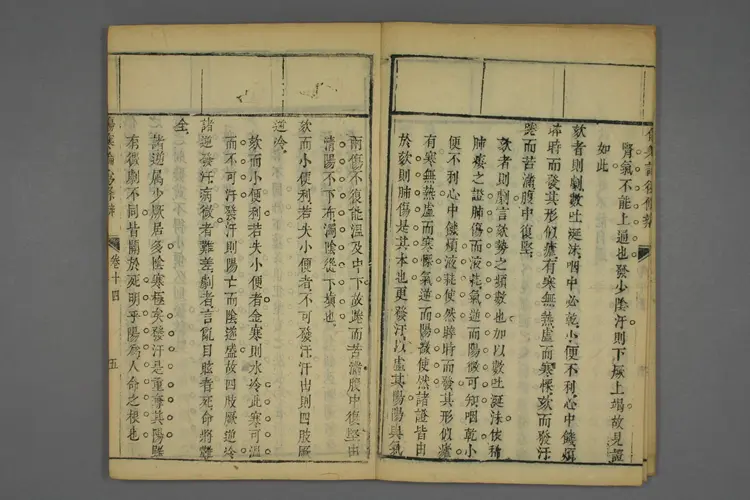 傷寒論後條辨
腎氣不能上通也發少陰汗則下厥上竭故見證
如此
欬者則劇數吐涎沫咽中必乾小便不利心中饑煩
晬時而發其形似瘧有寒無熱虛而寒慄欬而發汗
踡而苦滿腹中復堅
欬者則劇言欬勢之頻數也加以數吐涎沫依稀
肺痿之證肺傷而液耗氣逆而陽微可知咽乾小
便不利心中饑煩液耗使然晬時而發其形似瘧
有寒無熱虛而寒慄氣逆而陽微使然諸證皆由
於欬則肺傷是其本也更發汗以虛其陽陽與氣
兩傷不復能溫及中下故踡而苦滿腹中復堅由
清陽不下布濁陰從下填也
欬而小便利若失小便者不可發汗汗出則四肢厥
逆冷
欬而小便利若失小便者金寒則水冷此寒可溫
而不可汗發汗則陽亡而陰逆盛故四肢厥逆冷
諸逆發汗病微者難差劇者言亂目眩者死命將難
全
諸逆屬少厥居多陰寒極矣發汗是重奪其陽歴
有微劇不同皆關於死明乎陽為人命之根也
傷寒論後條辨
卷十四
五